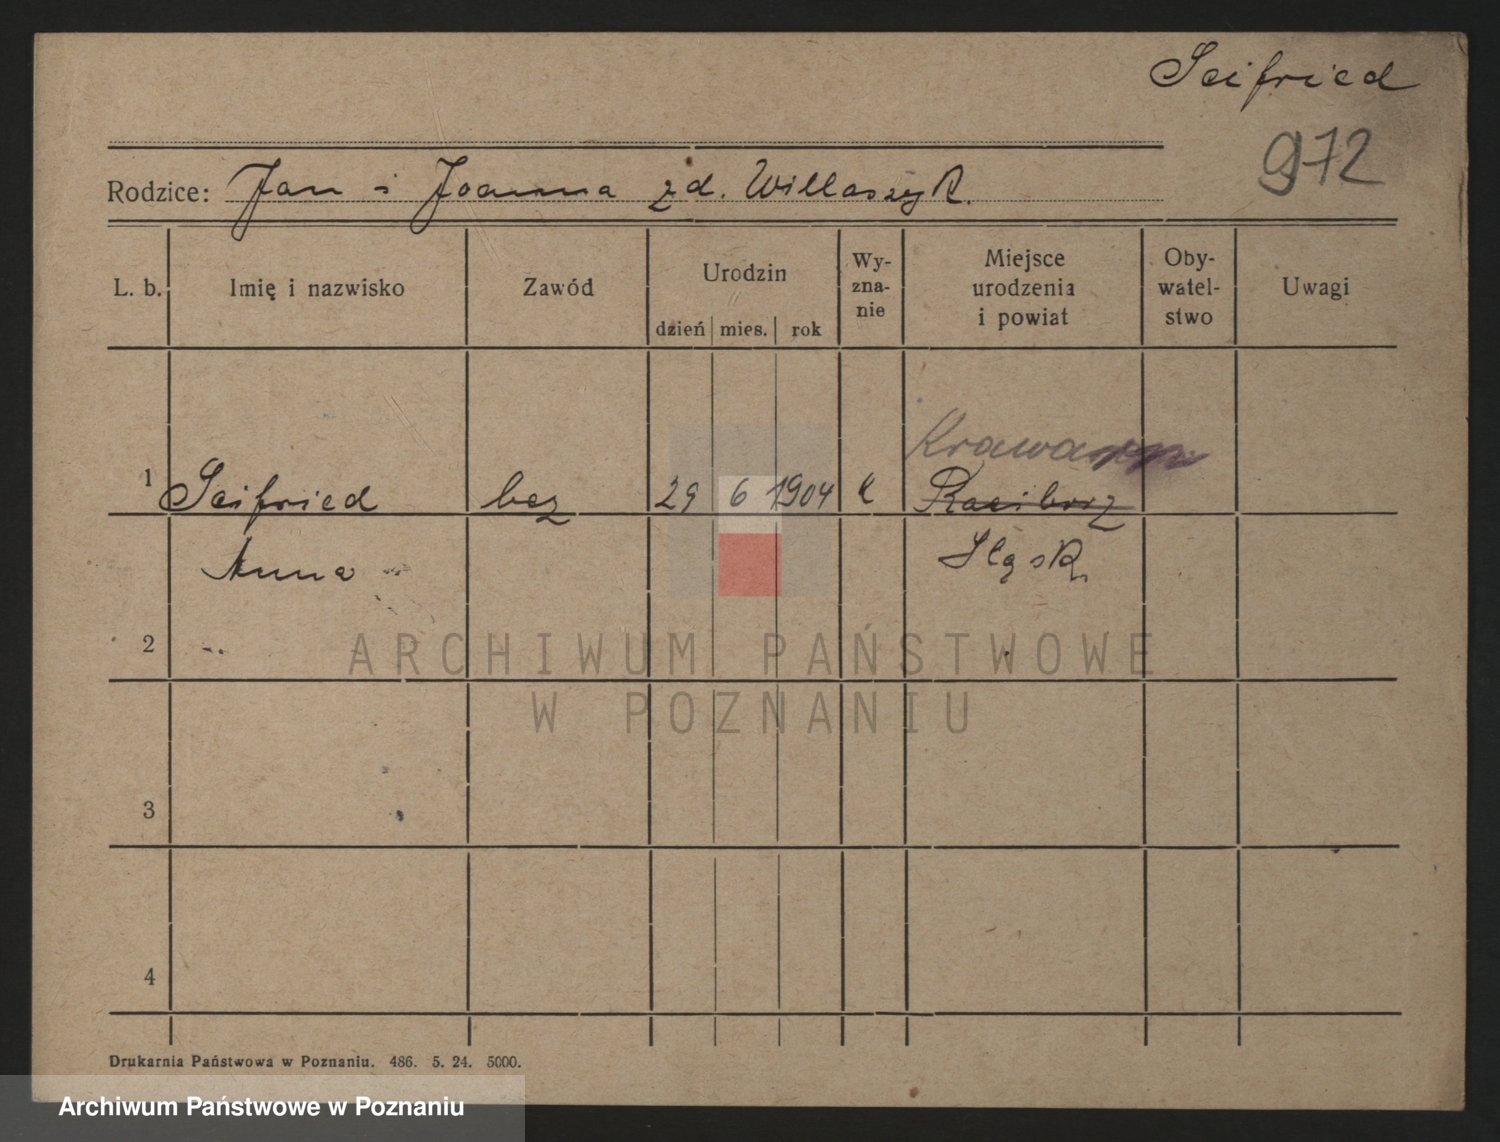 Seifried
972
Rodzice: Jan i Joanna zd. Willaszyk.
L. b. Imię i nazwisko Zawód Urodzin dzień mies. rok Wy-zna-nie Miejsce urodzenia i powiat Oby-watel-stwo Uwagi
Krawarn
1 Seifried bez 29 6 1904 k Racibórz
Anna Śląsk
2
3
4
ARCHIWUM PAŃSTWOWE
W POZNANIU
Drukarnia Państwowa w Poznaniu. 486. 5. 24. 5000.
Archiwum Państwowe w Poznaniu